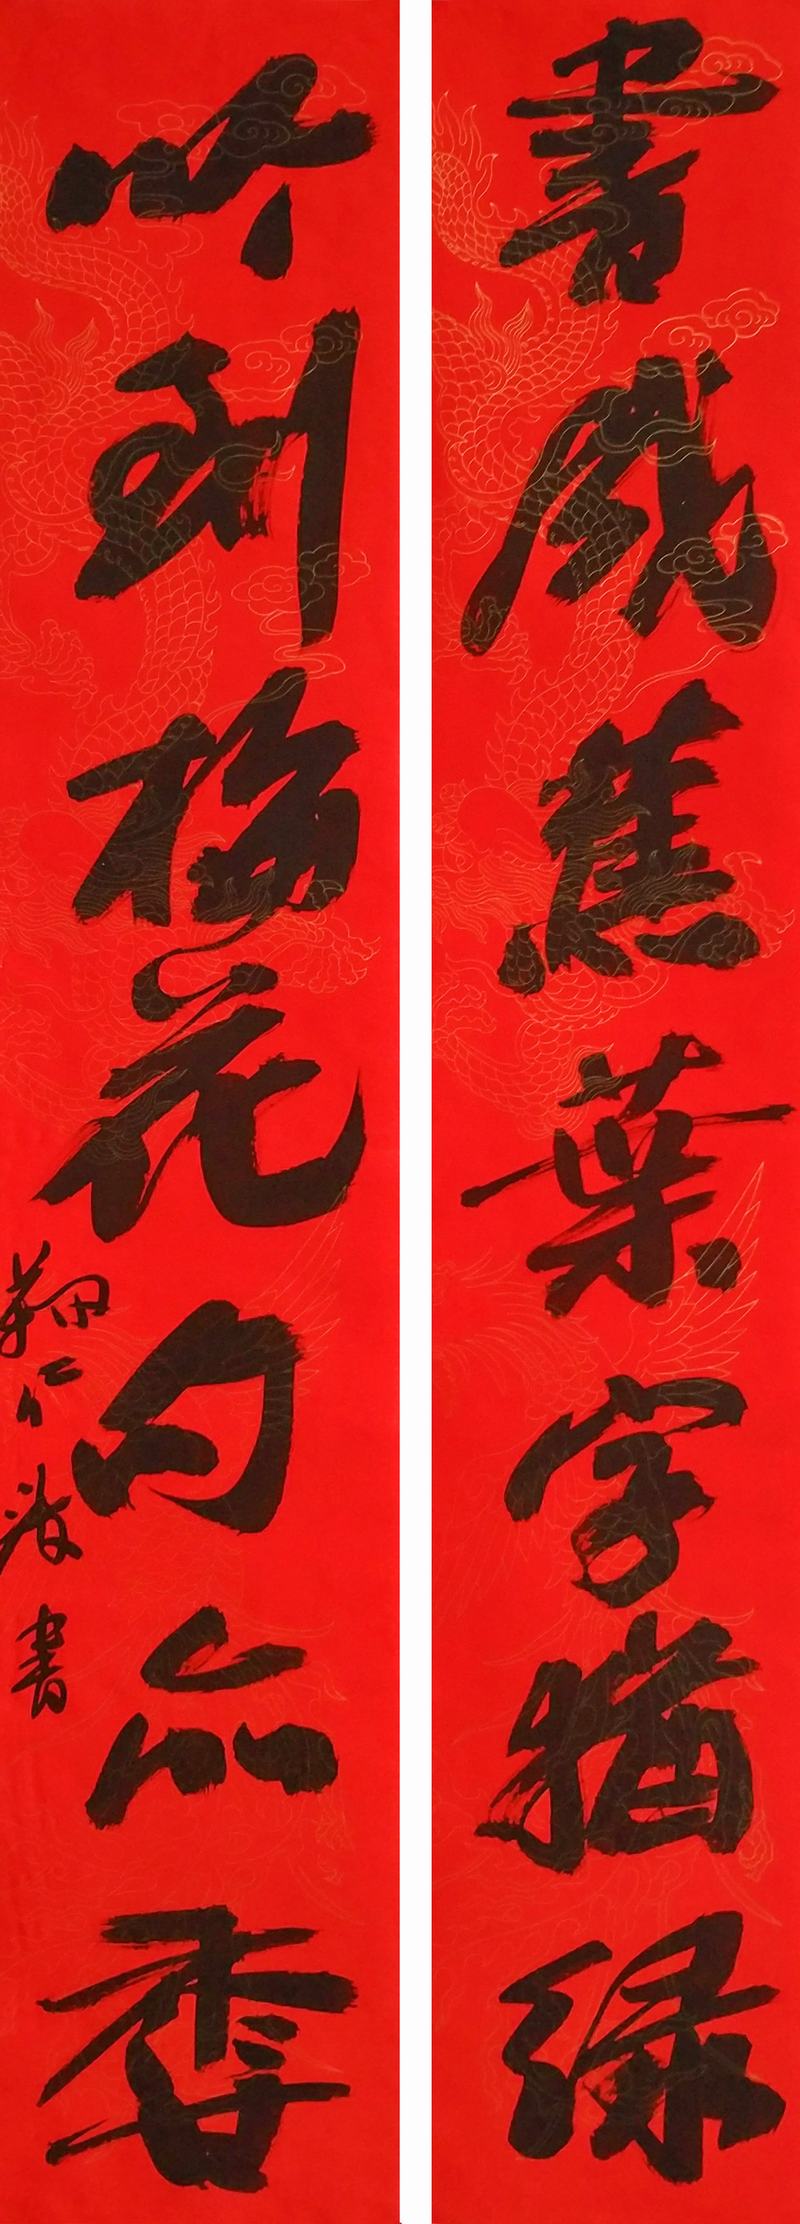 書成蕉葉字猶綠
吟到梅花句亦香
仁波書